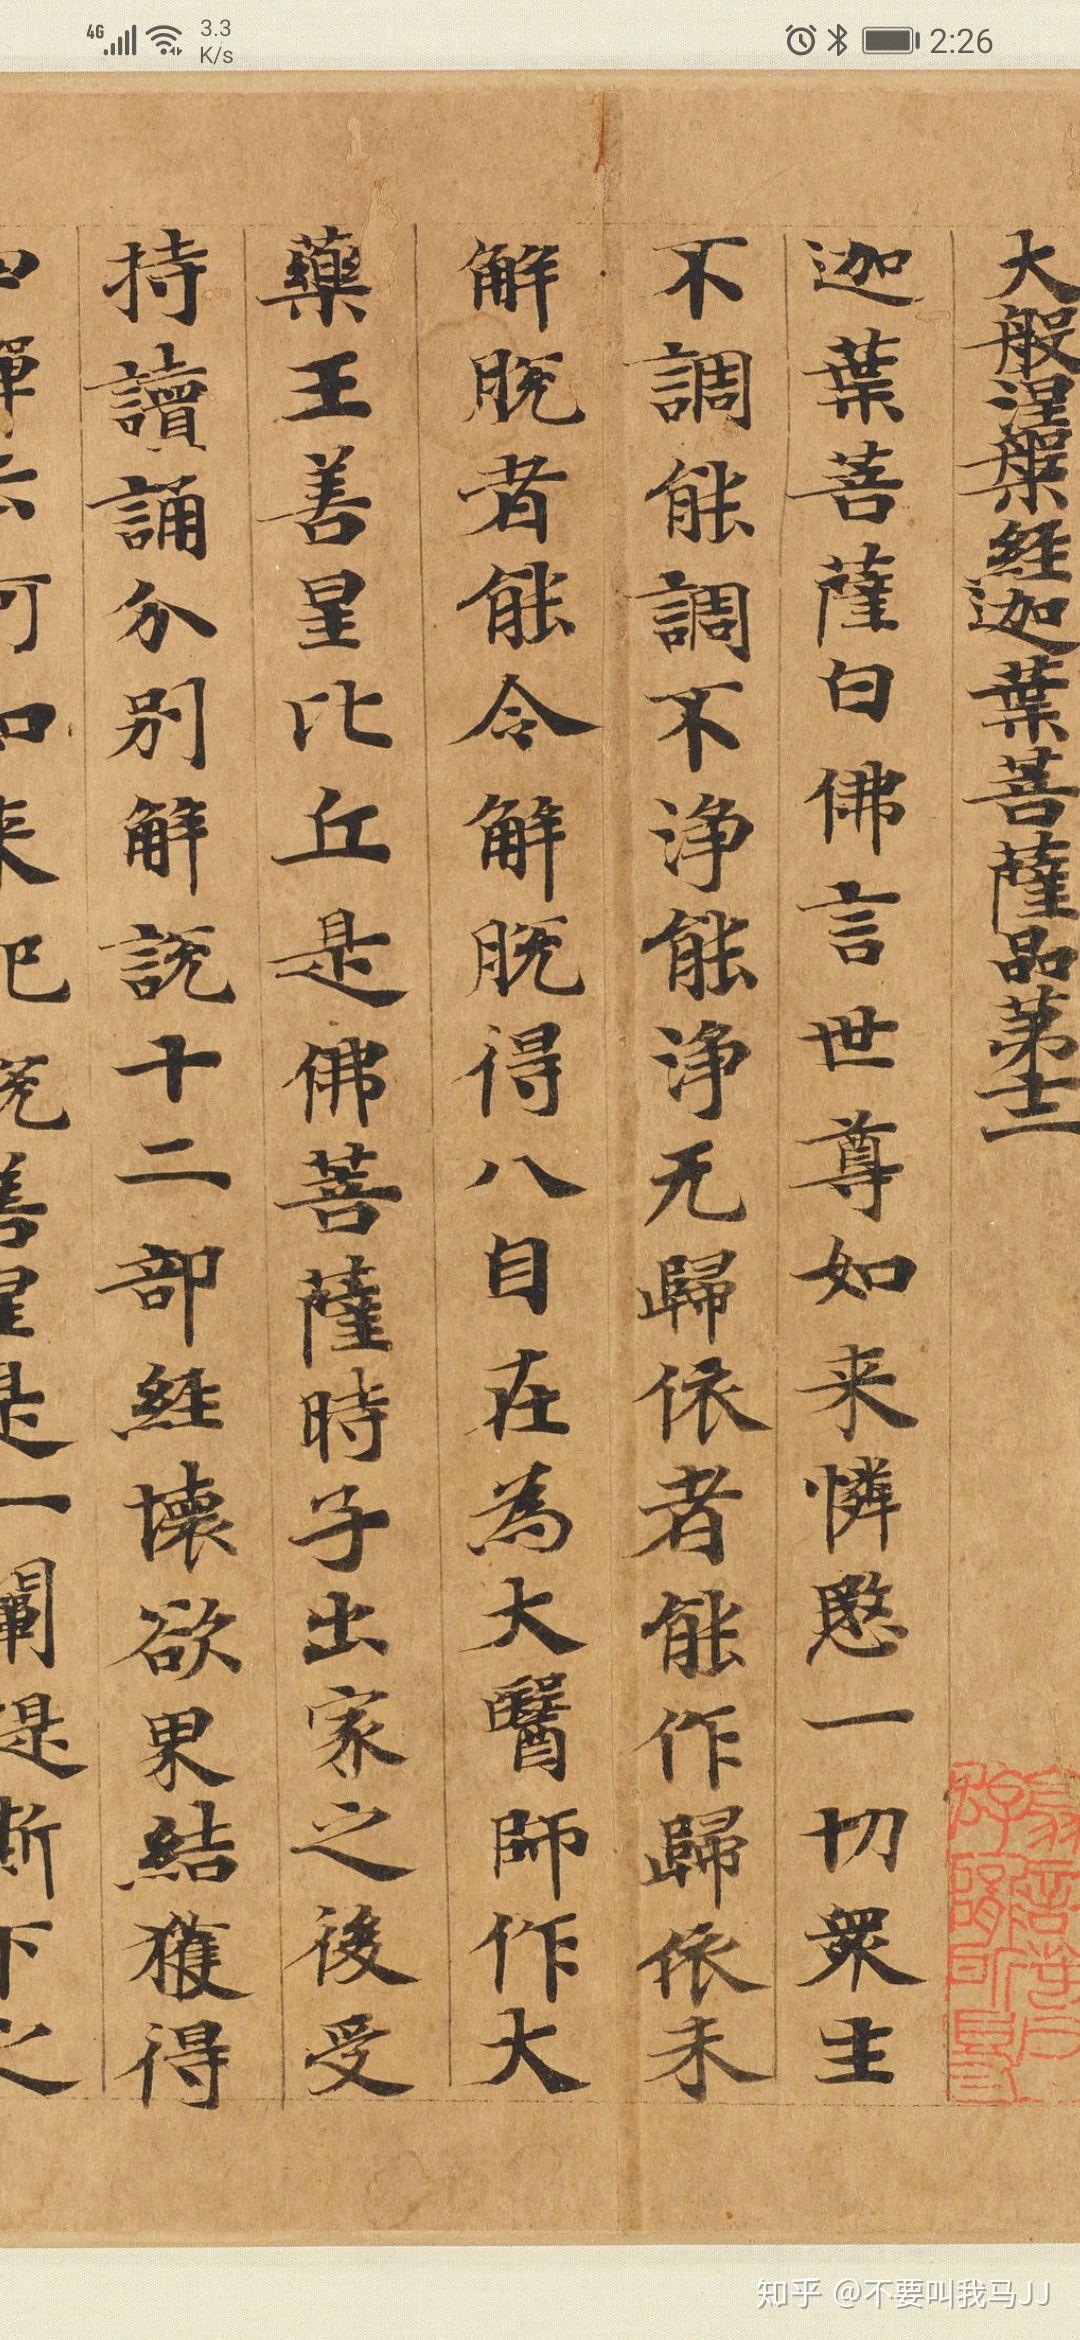 4G 3.3 K/s 2:26
大般涅槃經迦葉菩薩品第十二
迦葉菩薩白佛言世尊如来憐愍一切衆生
不調能調不淨能淨无歸依者能作歸依未
解脱者能令解脱得八自在為大醫師作大
藥王善星比丘是佛菩薩時子出家之後受
持讀誦分别解說十二部經壞欲界結獲得
四禪云何如来記說善星是一闡提斯下之
知乎 @不要叫我马JJ